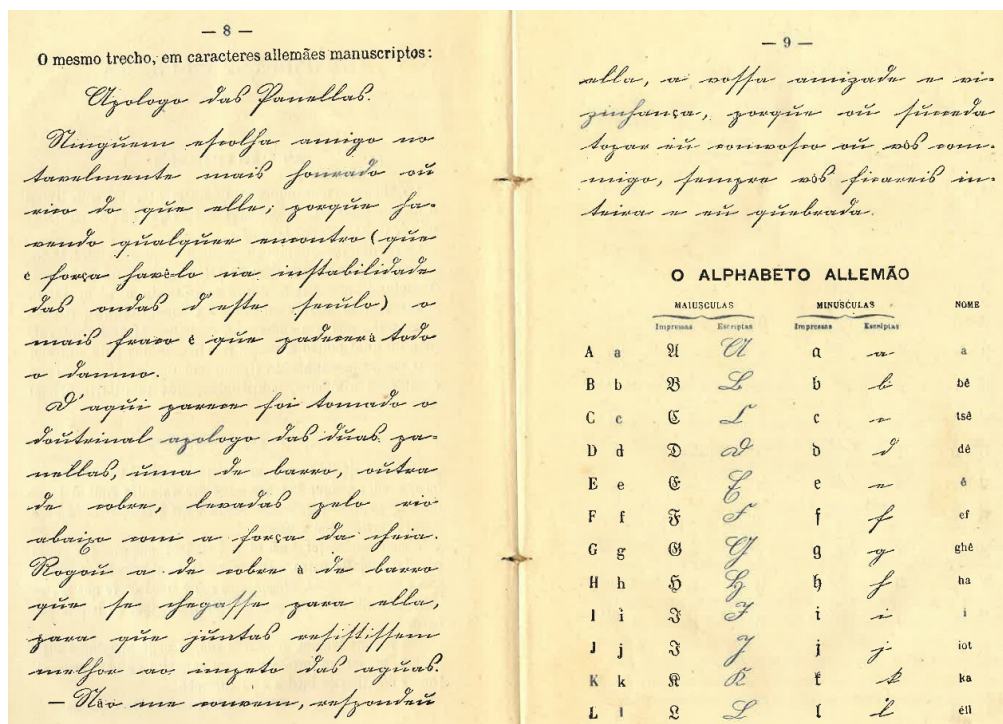 — 8 —
O mesmo trecho, em caracteres allemães manuscriptos:
Apologo das Panellas.
Ninguem escolha amigo no
tavelmente mais honrado ou
rico do que elle; porque ha-
vendo qualquer encontro (que
é força havê-lo na instabilidade
das ondas d'este seculo) o
mais fraco é que padecerá todo
o damno.
D'aqui parece foi tomado o
doutrinal apologo das duas pa-
nellas, uma de barro, outra
de cobre, levadas pelo rio
abaixo com a força da cheia.
Rogou a de cobre à de barro
que se chegasse para ella,
para que juntas resistissem
melhor ao impeto das aguas.
— Não me convem, respondeu
— 9 —
ella, a vossa amizade e vi-
zinhança, porque ou succeda
topar eu comvosco ou vós com-
migo, sempre vós ficareis in-
teira e eu quebrada.
O ALPHABETO ALLEMÃO
MAIUSCULAS MINUSCULAS NOME
Impressas Escriptas Impressas Escriptas
A a A A a a a
B b B B b b bê
C c C C c c tsê
D d D D d d dê
E e E E e e ê
F f F F f f ef
G g G G g g ghê
H h H H h h ha
I i I I i i i
J j J J j j iot
K k K K k k ka
L l L L l l éll